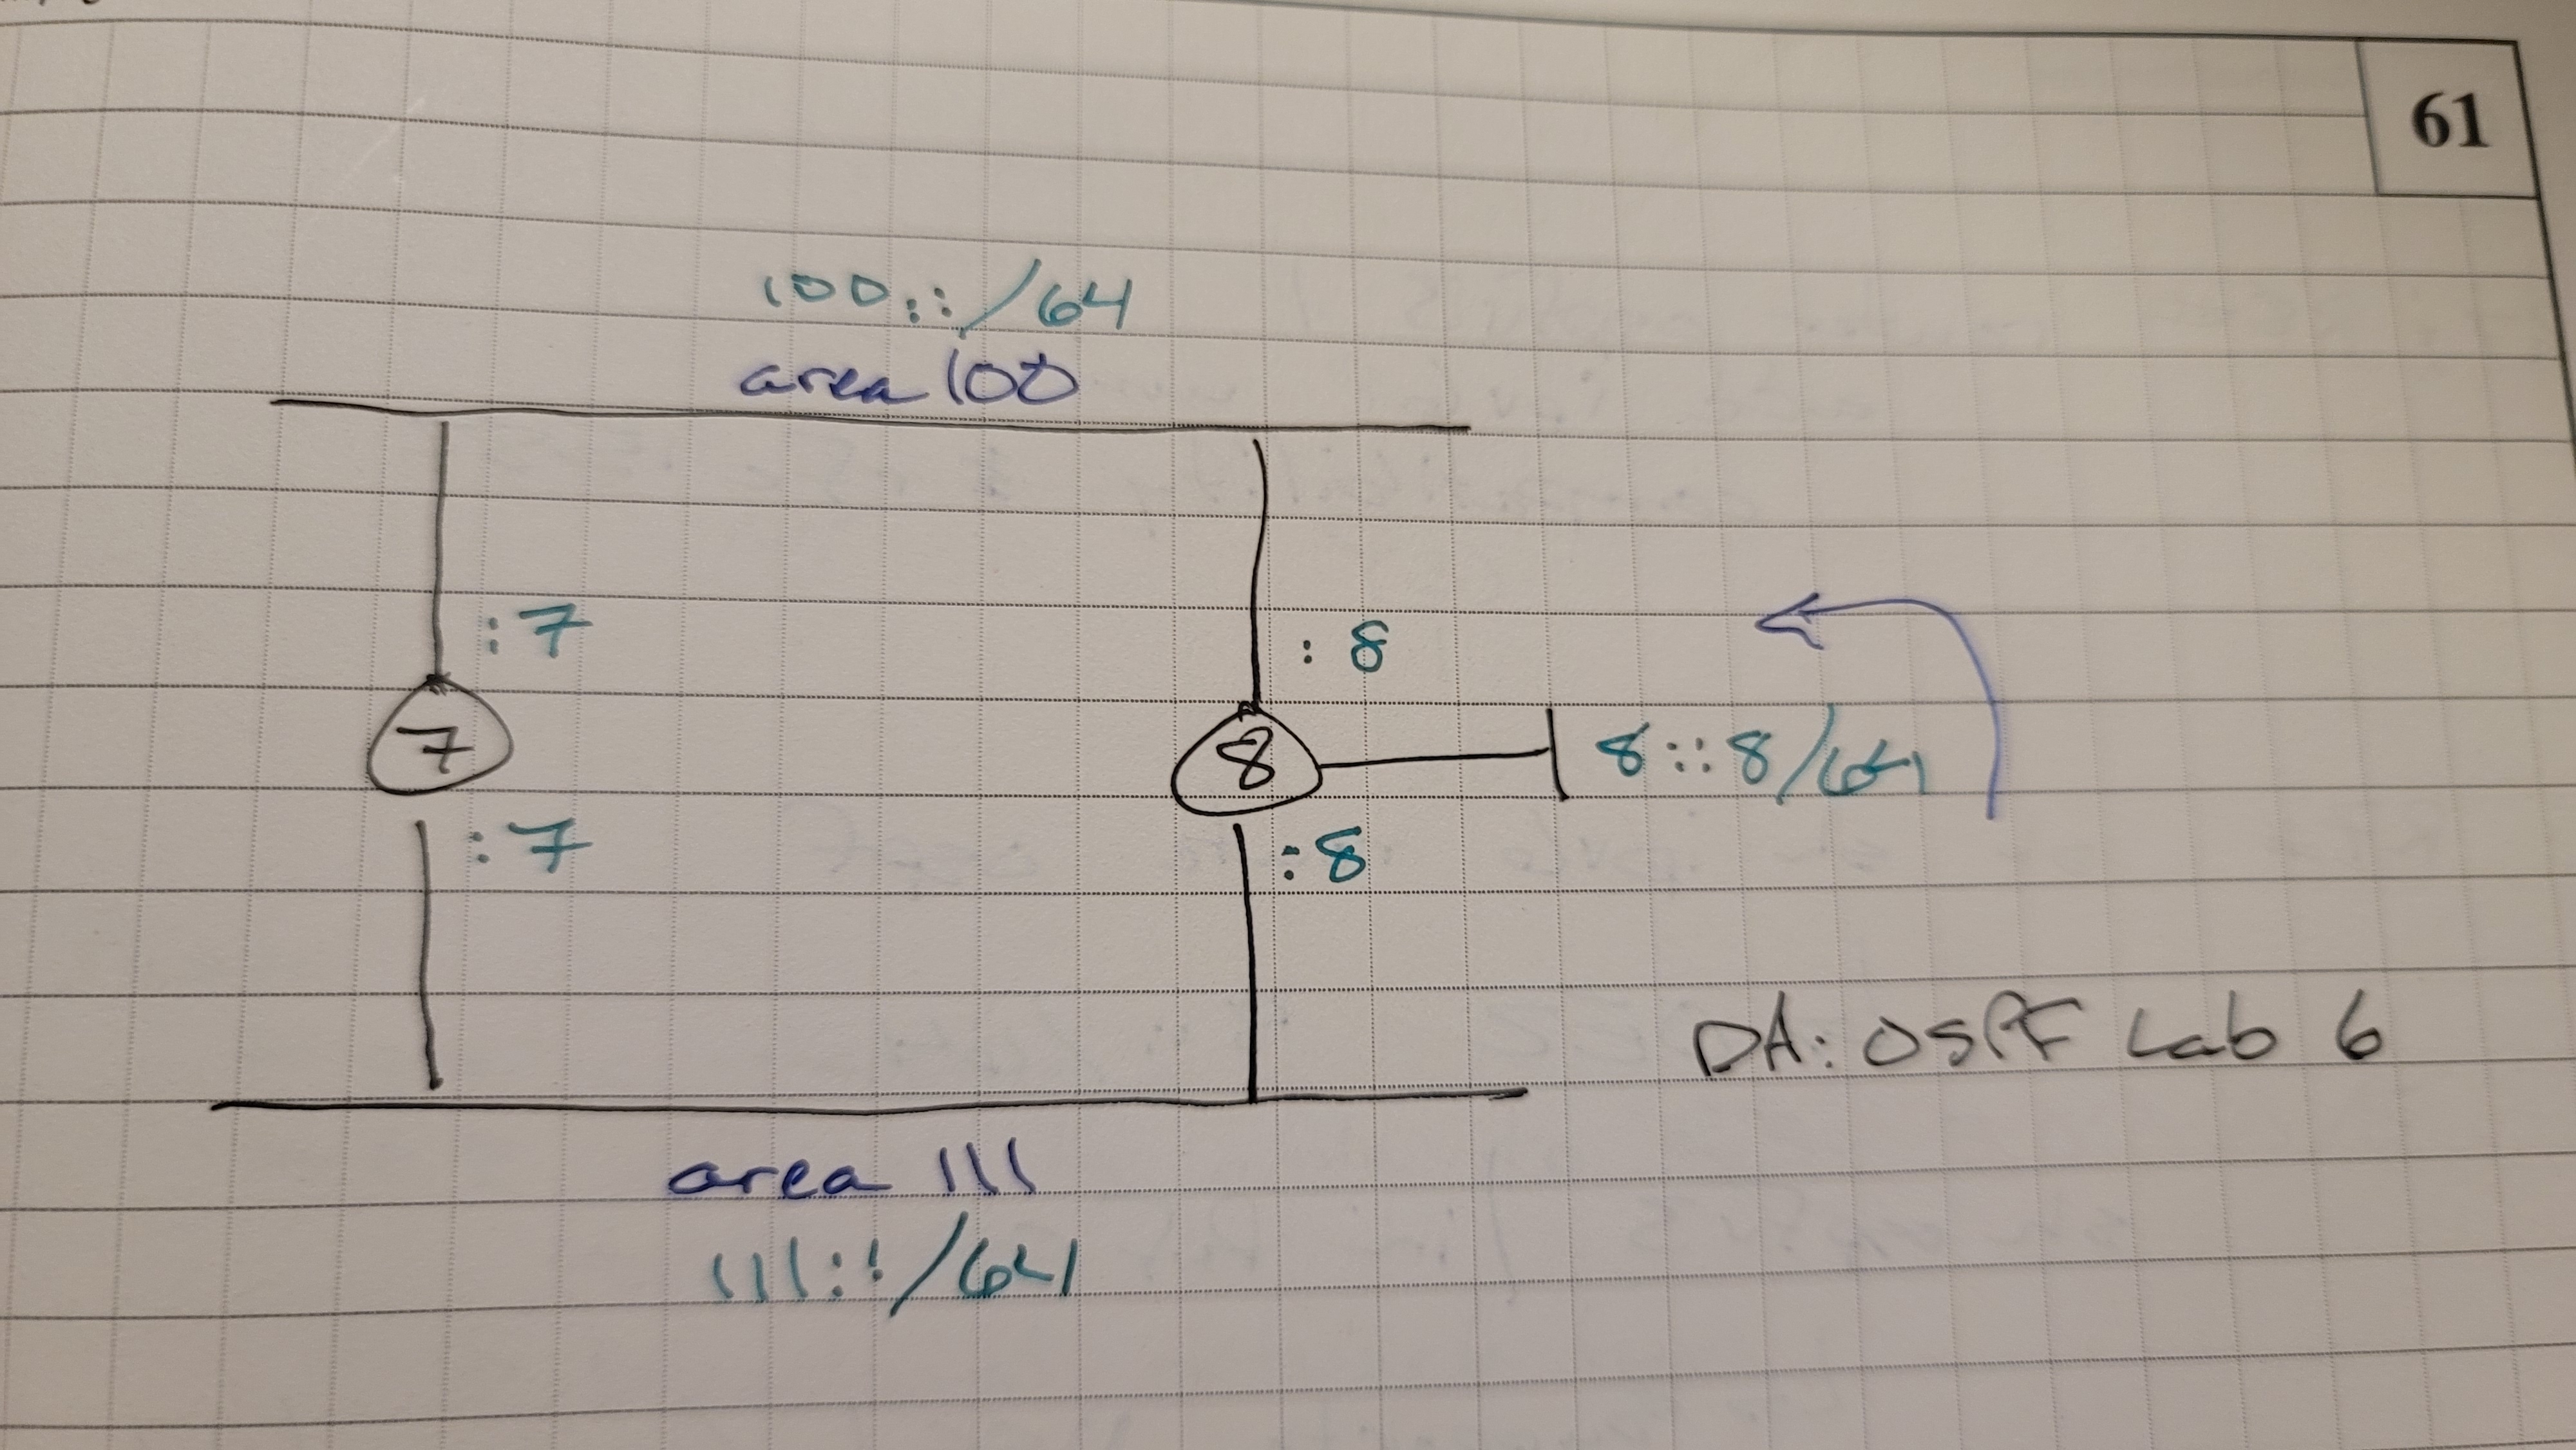 61
100::/64
area 100
:7
:8
7
8
8::8/64
:7
:8
DA: OSPF Lab 6
area 111
111::/64